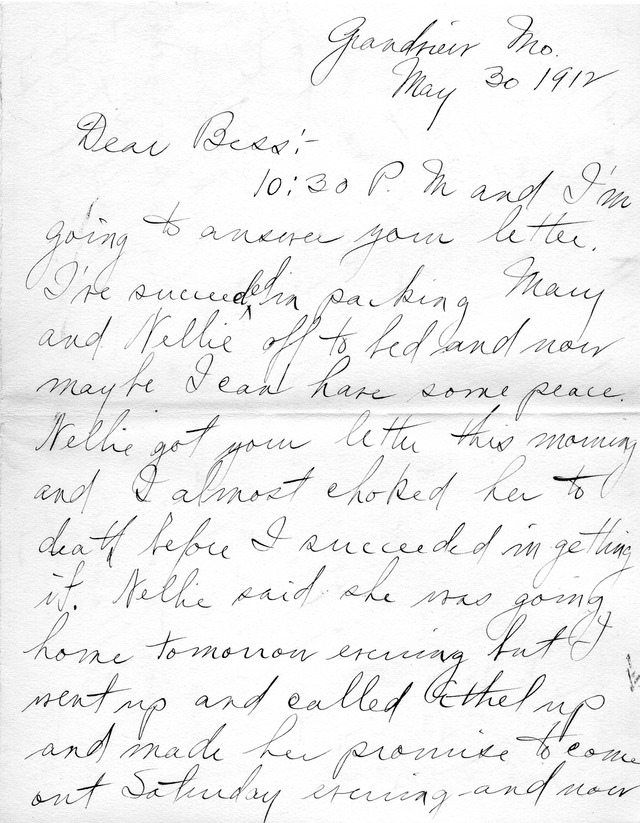 Grandview Mo.
May 30 1912
Dear Bess:-
10:30 P. M and I'm
going to answer your letter.
I've succeeded in packing Mary
and Nellie off to bed and now
maybe I can have some peace.
Nellie got your letter this morning
and I almost choked her to
death before I succeeded in getting
it. Nellie said she was going
home tomorrow evening but I
went up and called Ethel up
and made her promise to come
out Saturday evening and now